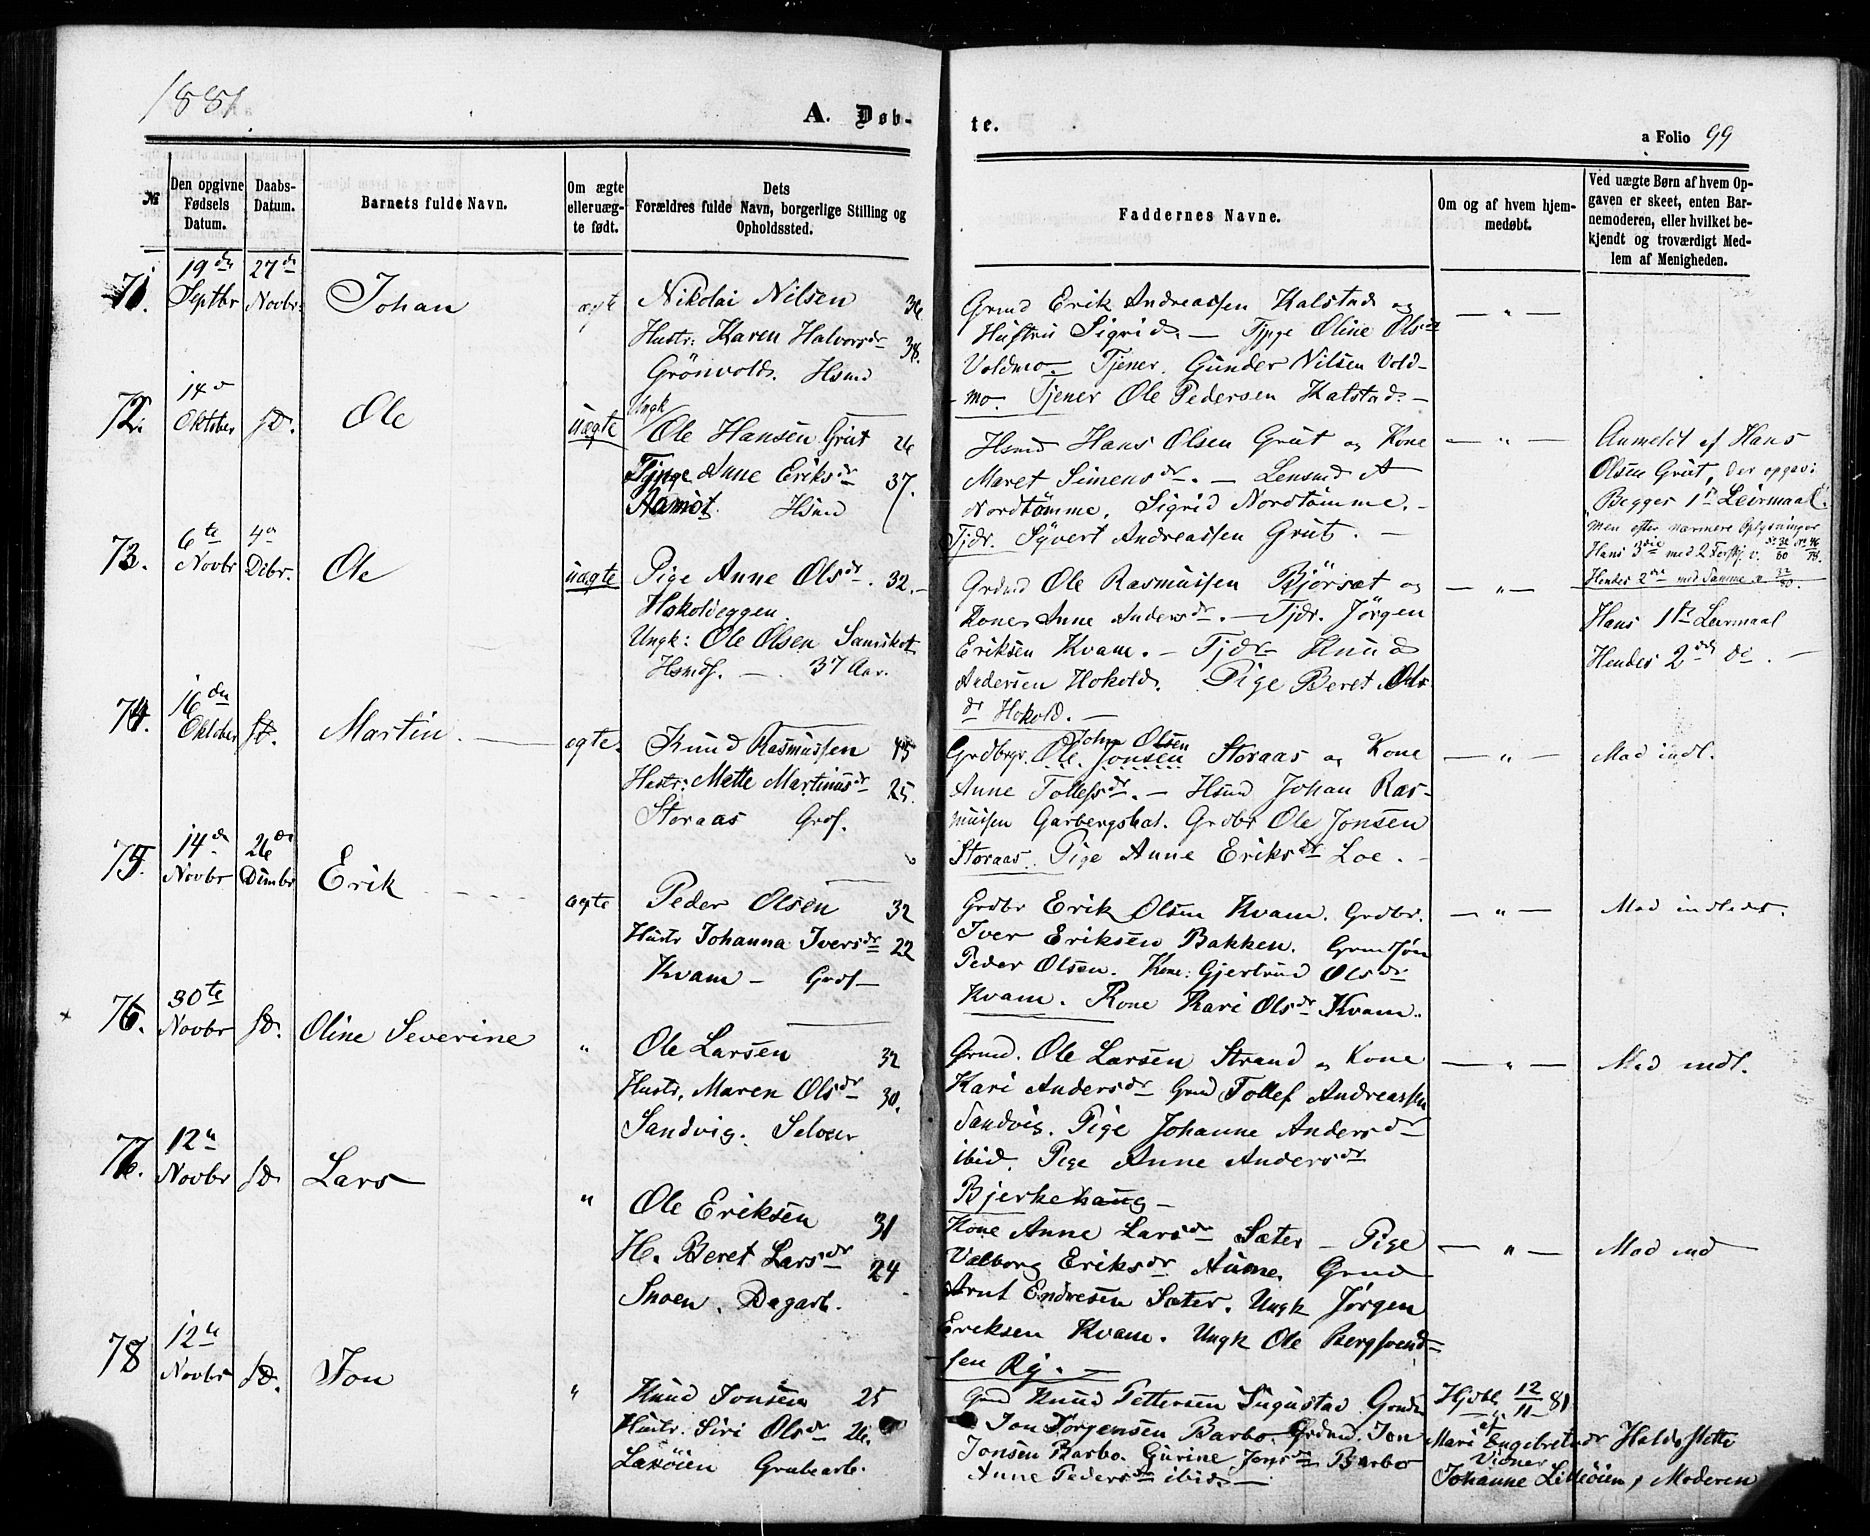 1881.
A. Døb-
te.
a Folio 99
№
Den opgivne
Fødsels
Datum.
Daabs-
Datum.
Barnets fulde Navn.
Om ægte
elleruæg-
te født.
Dets
Forældres fulde Navn, borgerlige Stilling og
Opholdssted.
Faddernes Navne.
Om og af hvem hjem-
medøbt.
Ved uægte Børn af hvem Op-
gaven er skeet, enten Bar-
nemoderen, eller hvilket be-
kjendt og troværdigt Med-
lem af Menigheden.
71.
19de
Septbr
27de
Novbr.
Johan
ægte
Nikolai Nilsen 36
Hustr: Karen Halvorsdr 38.
Grönvold. Hsmd
Grmd Erik Andreassen Kalstad og
Hustru Sigrid. — Tjpge Oline Olsdr
Voldmo. Tjener Gunder Nilsen Vold-
mo. Tjener Ole Pedersen Kalstad. —
— „ —
72.
14d
Oktober
sd.
Ole
uægte
Ungk
Ole Hansen Grut 26
Tjpge Anne Eriksdr 37.
Aamot. Hsmd
Hsmd Hans Olsen Grut og Kone
Maret Simensdr. — Lensmd A
Nordtömme. Sigrid Nordtömme. —
Tjdr. Syvert Andreassen Grut. —
— „ —
Anmeldt af Hans
Olsen Grut, der opgav:
Begges 1ste Leirmaal.
Men efter nærmere Oplysninger
Hans 3die med 2 Forskj. v. № 32/80 № 46/78.
Hendes 2det med Samme v 32/80.
73.
6te
Novbr
4de
Dcbr.
Ole
uægte
Pige Anne Olsdr. 32.
Hokoldeggen
Ungk: Ole Olsen Samskot
Hsmds. — 37 Aar.
Grdmd Ole Rasmussen Bjørsæt og
Kone Anne Andersdr. — Tjdr. Jörgen
Eriksen Kvam. — Tjdr Knud
Andersen Hokold. Pige Beret Ols
dr Hokold. —
— „ —
Hans 1ste Leirmaal
Hendes 2det do. —
74.
16den
Oktober
sd.
Martin. —
ægte.
Knud Rasmussen 45
Hustr: Mette Martinusdr 25.
Storaas Grdf.
John Olsen
Grdbrgr. Ole Jonsen Storaas og Kone
Anne Tollefsdr. — Hsmd Johan Ras-
mussen Garbergshat. Grdbr Ole Jonsen
Storaas. Pige Anne Eriksdr Loe. —
— „ —
Mod indl.
75.
14de
Novbr
26de
Dcmbr
Erik
ægte
Peder Olsen 32
Hustr Johanna Iversdr 22
Kvam — Grdf —
Grdbr Erik Olsen Kvam. Grdbr.
Iver Eriksen Bakken. Grmdsøn
Peder Olsen. Kone: Gjertrud Olsdr
Kvam. Kone Kari Olsdr Kvam.
— „ —
Mod indladt.
76.
30te
Novbr
sd.
Oline Severine
„
Ole Larsen 32
Hustr. Maren Olsdr 30.
Sandvig. Selveier
Grmd. Ole Larsen Strand og Kone
Kari Andersdr Grmd Tollef Andreassen
Sandvig. Pige Johanne Andersdr
ibid. Pige Anne Andersdr
Bjerkehaug —
— „ —
Mod indl.
77.
12te
Novbr
sd.
Lars
„
Ole Eriksen 31
H. Beret Larsdr 24
Snoen. Dagarb.
Kone Anne Larsdr Sæter — Pige
Valborg Eriksdr Aune. Grmd
Arnt Endresen Sæter. Ungk Jörgen
Eriksen Kvam. Ungk Ole Bergsvend-
sen Ry. —
— „ —
Mod ind
78
12te
Novbr
sd.
Jon
„
Knud Jonsen 25
Hustr. Siri Olsdr 26.
Laxöien Grubearb.
Grmd Knud Pettersen Sugustad Grmd
Jon Jörgensen Barbo. Grdmd. Jon
Jonsen Barbo. Gurine Jonsdr Barbo
Anne Pedersdr ibid. —
Hjdbt 12/11 81
af
Mari Engebretsdr Haldoslette
Vidner
Johanne Lilleöien, Moderen